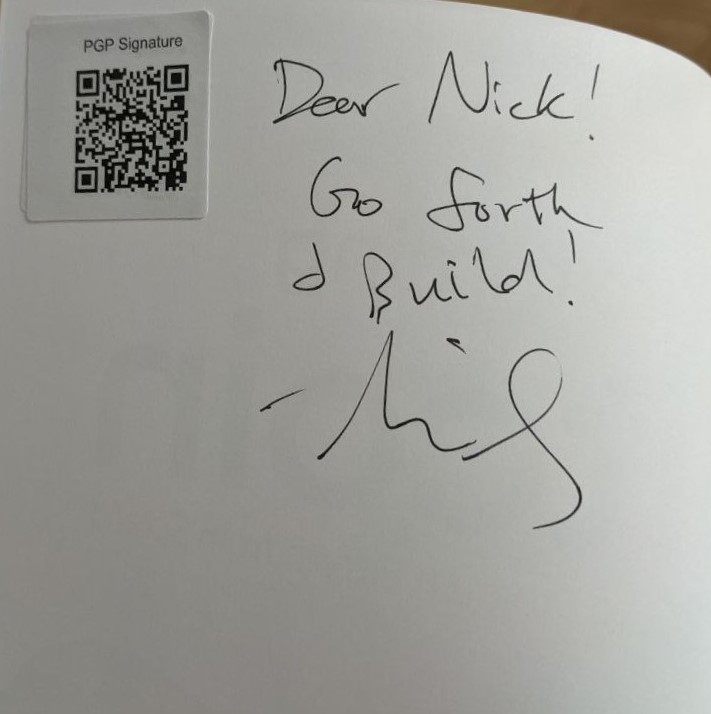 PGP Signature
Dear Nick!
Go forth
& Build!